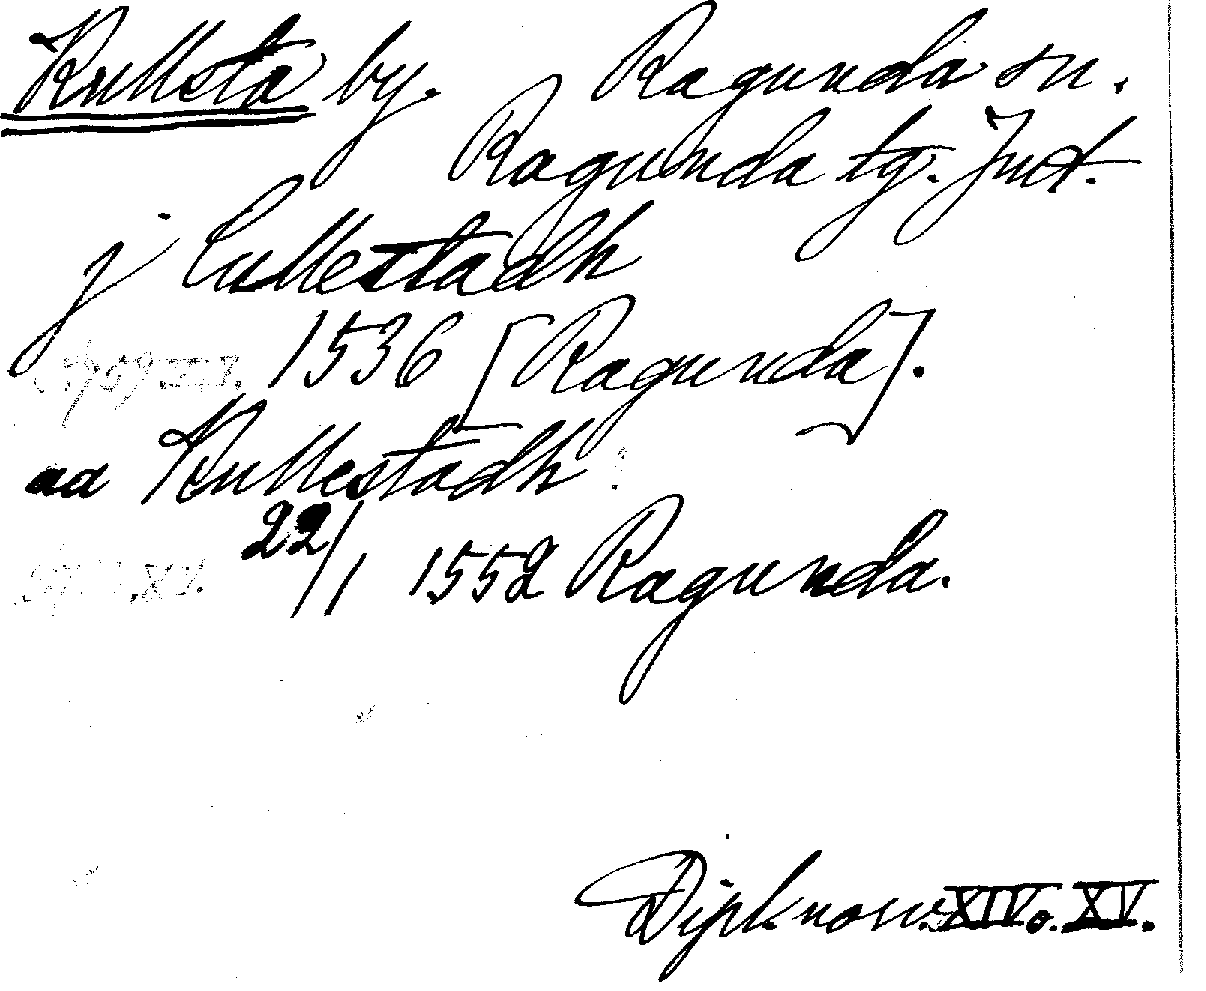 Kullsta by. Ragunda sn.
Ragunda tg. Jmt.
j Cullestadh
1536 [Ragunda].
aa Kullestadh
22/1 1552 Ragunda.
Dipl. norv. XIV o. XV.